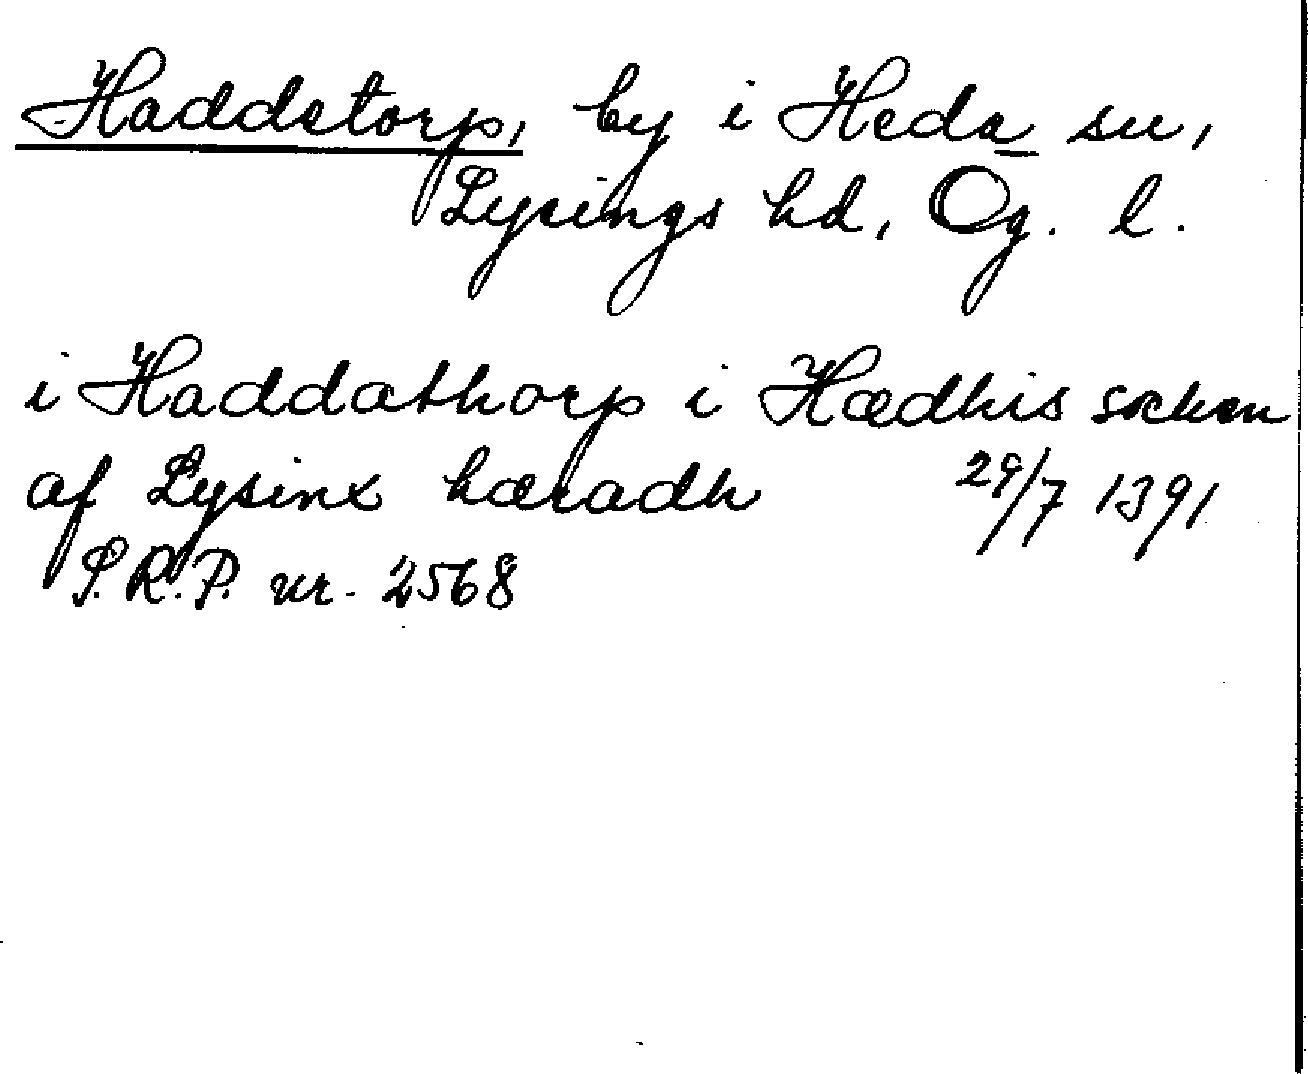 Haddetorp, by i Heda sn,
Lysings hd, Ög. l.
i Haddathorp i Hædhis sokn
af Lysinx hæradh 29/7 1391
S.R.P. nr. 2568